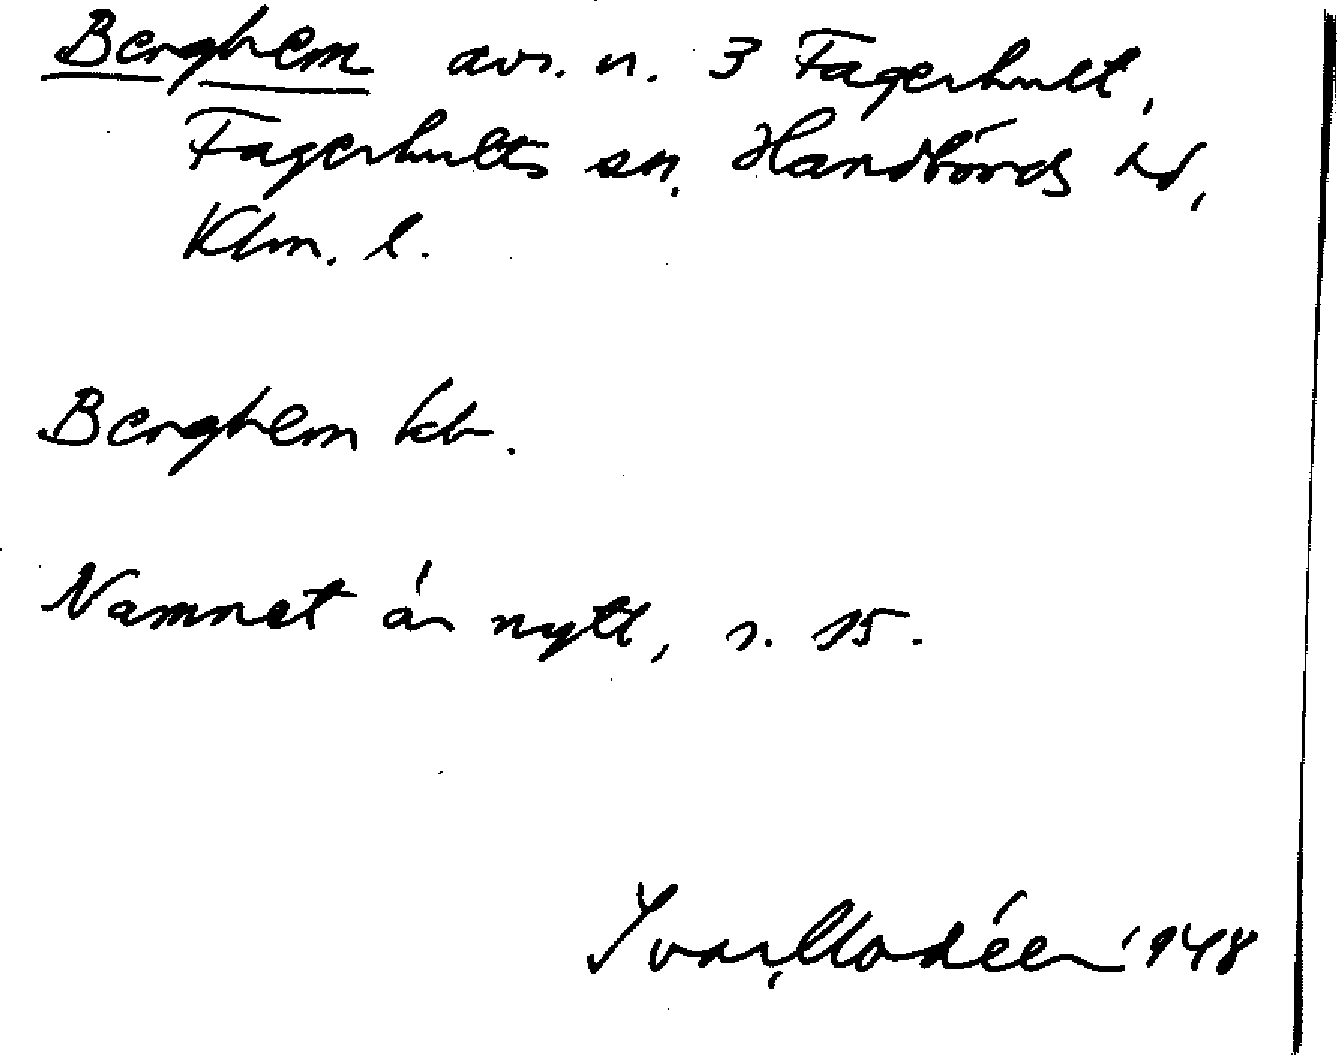 Berghem avs. n. 3 Fagerhult,
Fagerhults sn. Handbörds hd,
Klm. l.
Berghem kb.
Namnet är nytt, s. 15.
Ivar Modéer 1948